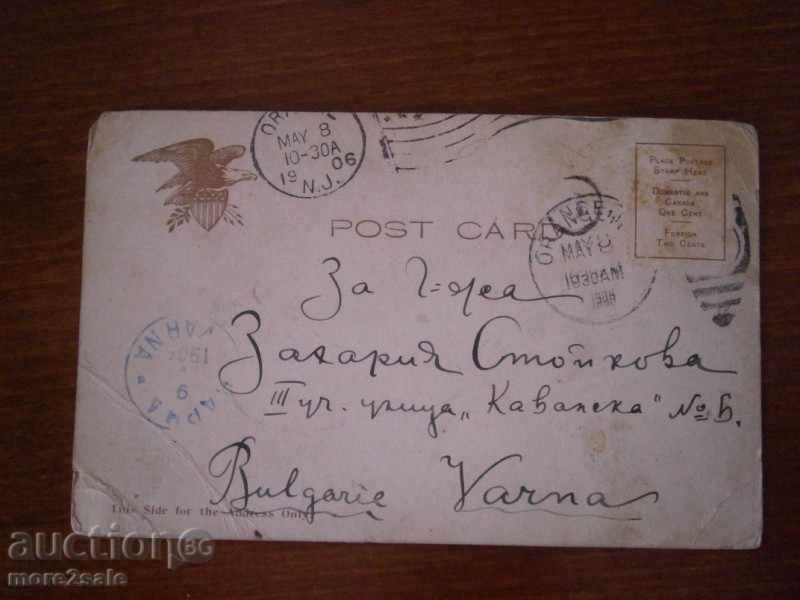 MAY 8
10-30A
1906
N.J.
PLACE POSTAGE
STAMP HERE
DOMESTIC AND
CANADA
ONE CENT
FOREIGN
TWO CENTS
POST CARD
ORANGE
MAY 8
1030AM
За Г-жа
Захария Стойкова
III уч. улица „Каванска“ № Б.
VARNA
ВАРНА
Bulgarie Varna
This Side for the Address Only
auctionBG
more2sale